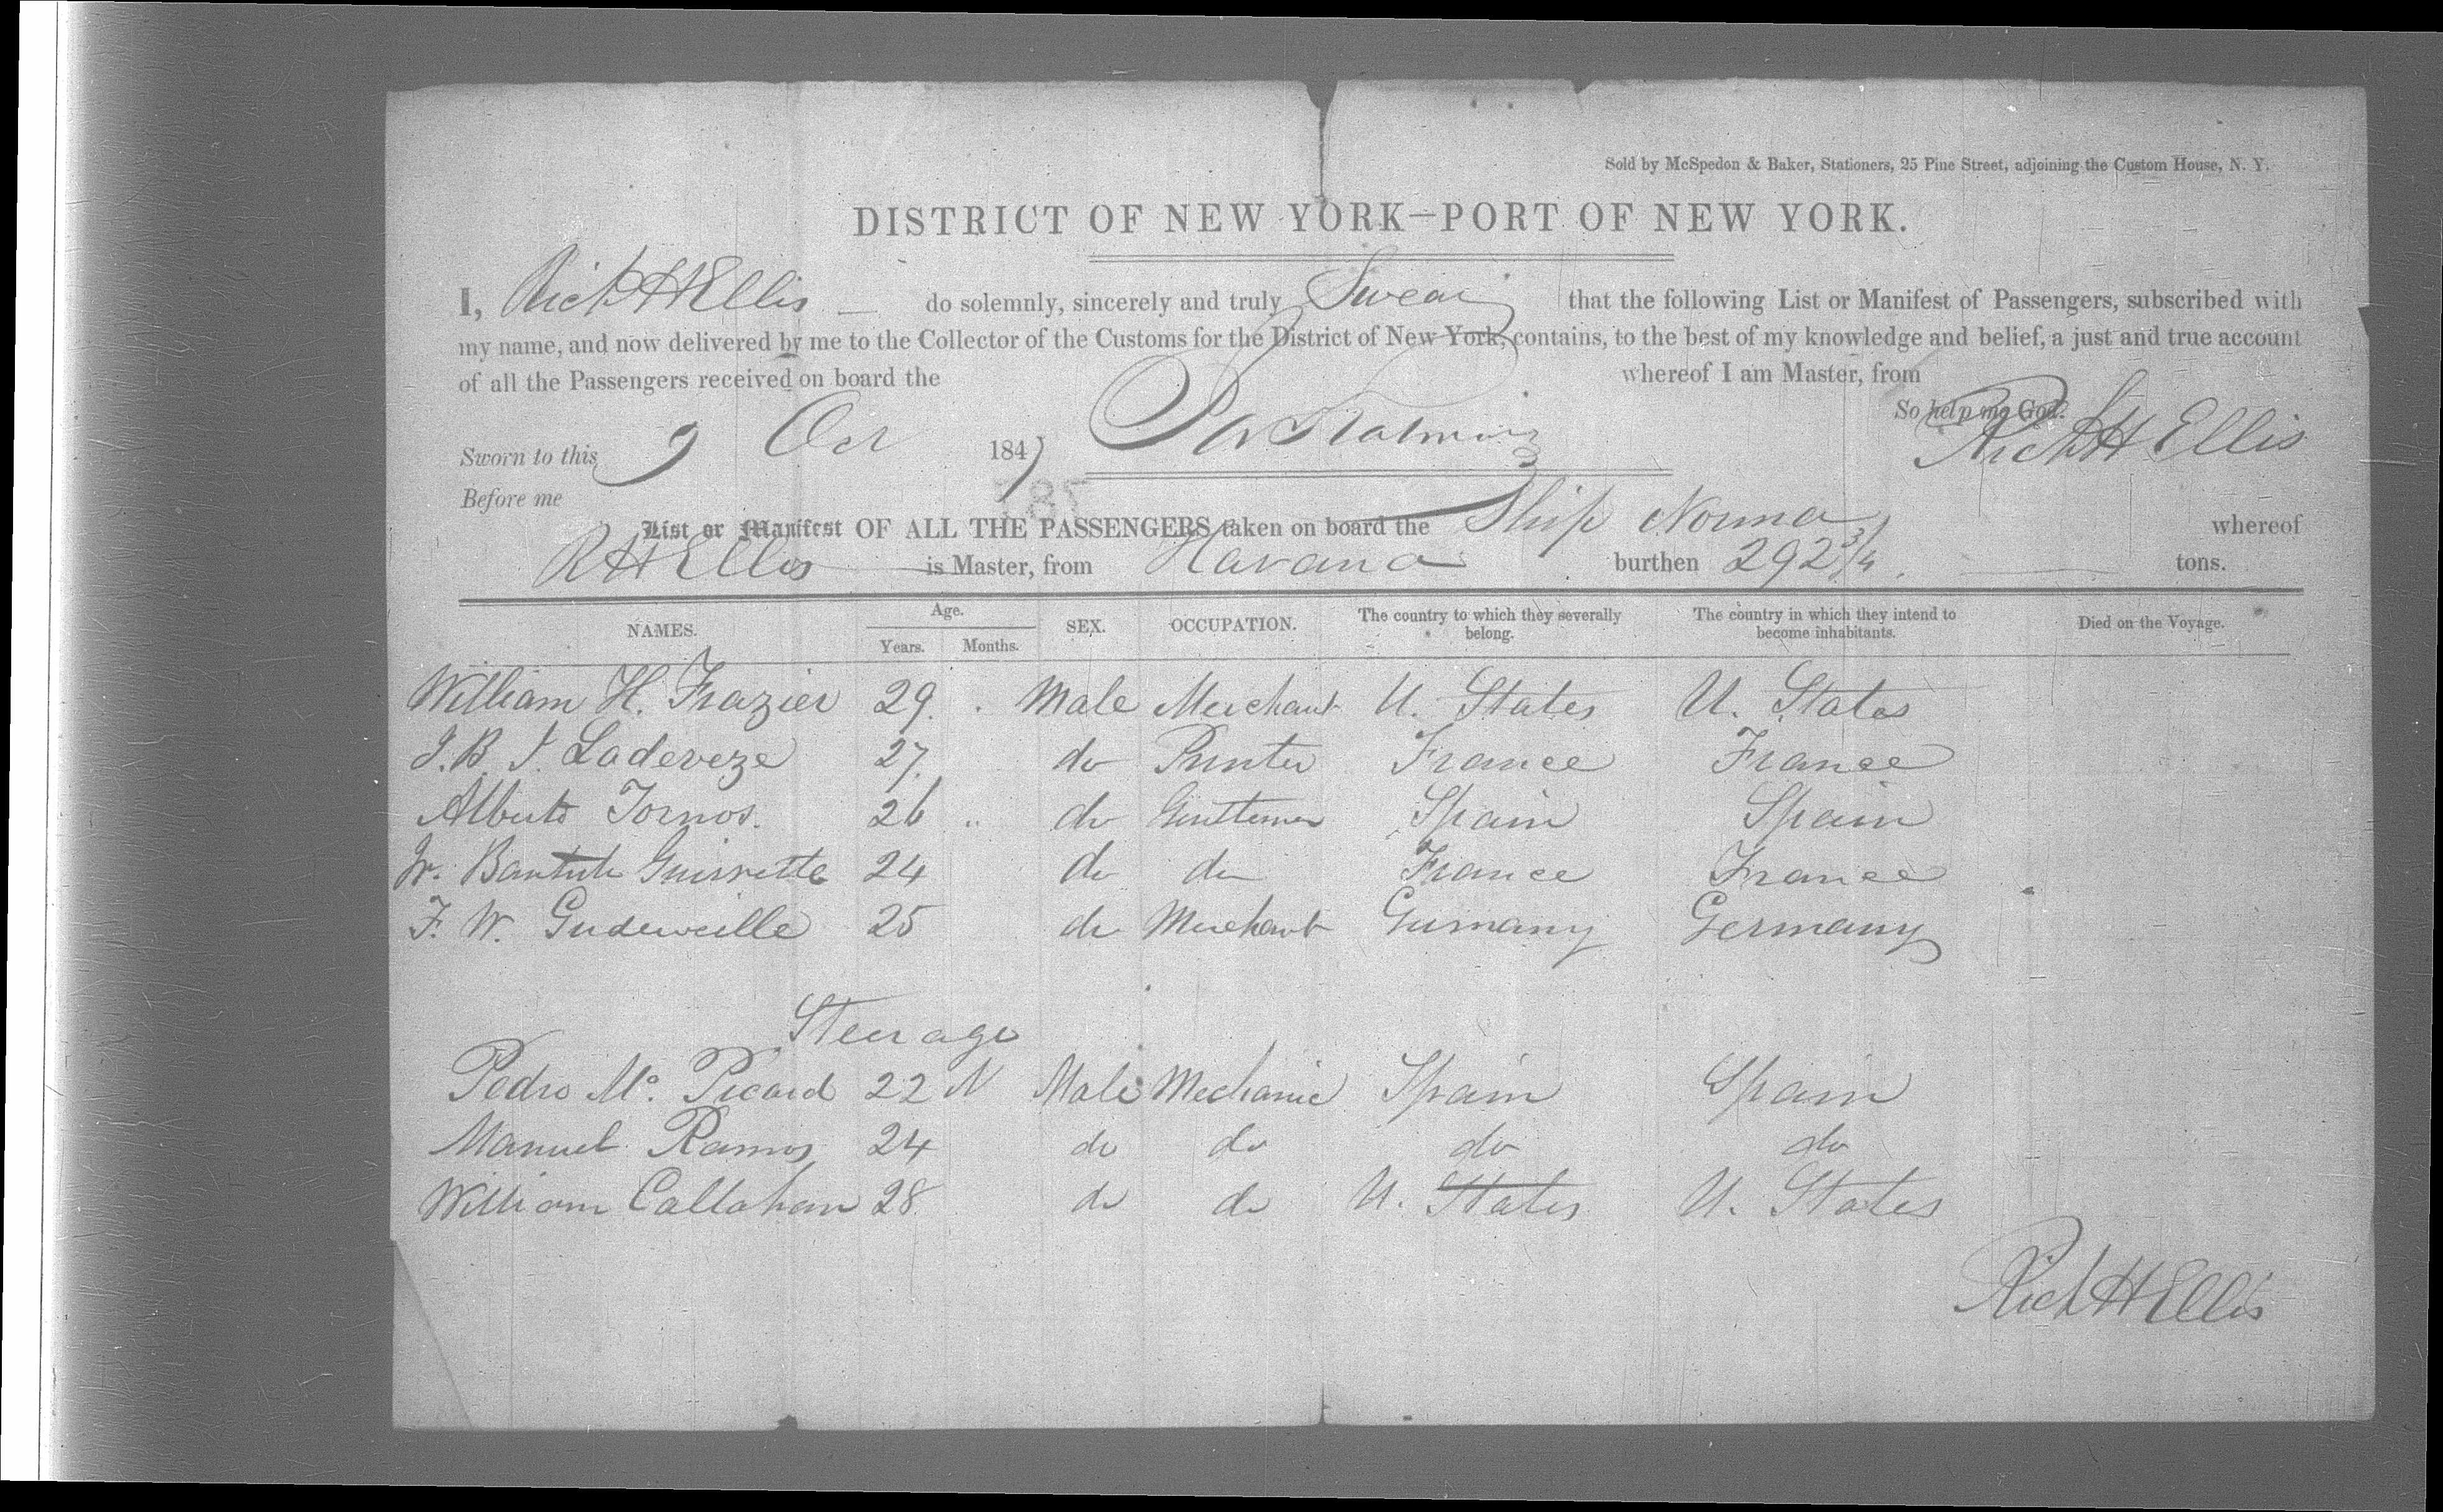 Sold by McSpedon & Baker, Stationers, 25 Pine Street, adjoining the Custom House, N. Y.
DISTRICT OF NEW YORK—PORT OF NEW YORK.
I, Rich H Ellis — do solemnly, sincerely and truly Swear that the following List or Manifest of Passengers, subscribed with
my name, and now delivered by me to the Collector of the Customs for the District of New York, contains, to the best of my knowledge and belief, a just and true account
of all the Passengers received on board the whereof I am Master, from
So help me God.
Sworn to this 9 Oct 1847 Rich H Ellis
Before me
List or Manifest OF ALL THE PASSENGERS taken on board the Ship Norma whereof
R H Ellis is Master, from Havana burthen 292 3/4 tons.
NAMES. Age. Years. Months. SEX. OCCUPATION. The country to which they severally belong. The country in which they intend to become inhabitants. Died on the Voyage.
William H. Frazier 29 Male Merchant U. States U. States
J. B. J. Ladeveze 27 do Printer France France
Alberto Tornos. 26 " do Gentleman Spain Spain
24 do do France France
F. W. 25 do Merchant Germany Germany
Steerage
Pedro Mº. Picard 22 Male Mechanic Spain Spain
Manuel Ramos 24 do do do do
William Callahan 28 do do U. States U. States
Rich H Ellis